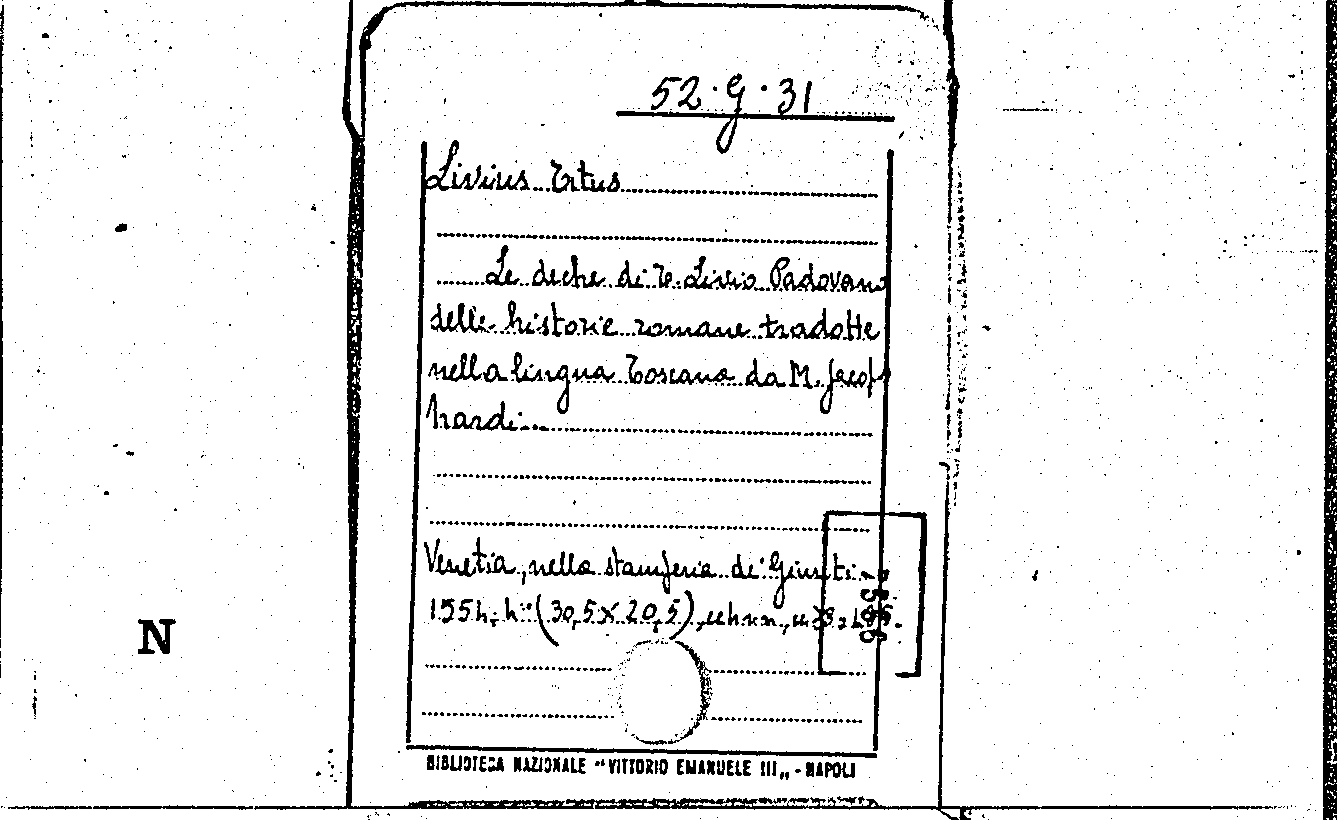 52·g·31
Livius Titus
Le deche di T. Livio Padovano
delle historie romane tradotte
nella lingua Toscana da M. Jacopo
Nardi...
Venetia, nella stamperia de' Giunti
(30,5 x 20,5)
N
BIBLIOTECA NAZIONALE "VITTORIO EMANUELE III„ - NAPOLI